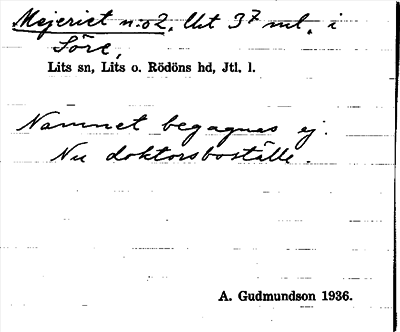 Mejeriet n:o2. Ut 3⁷ ml. i
Söre,
Lits sn, Lits o. Rödöns hd, Jtl. l.
Namnet begagnas ej.
Nu doktorsboställe.
A. Gudmundson 1936.